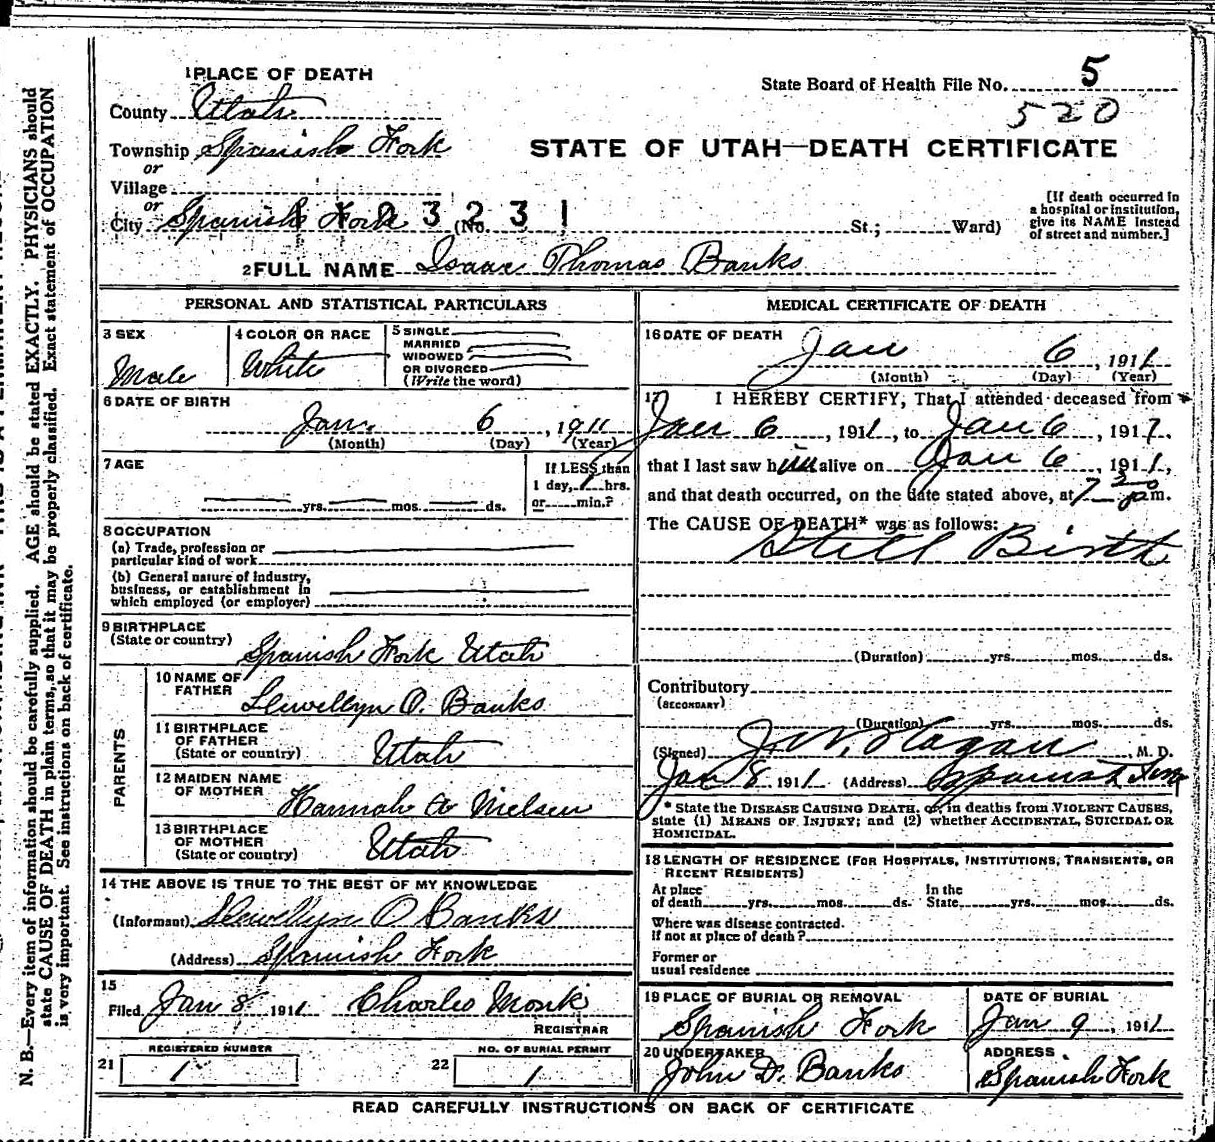 1 PLACE OF DEATH
State Board of Health File No. 5
520
County Utah
Township Spanish Fork
or
Village
or
City Spanish Fork (No. St.; Ward)
3231
STATE OF UTAH—DEATH CERTIFICATE
[If death occurred in
a hospital or institution,
give its NAME instead
of street and number.]
2 FULL NAME Isaac Thomas Banks
PERSONAL AND STATISTICAL PARTICULARS
3 SEX
Male
4 COLOR OR RACE
White
5 SINGLE
MARRIED
WIDOWED
OR DIVORCED
(Write the word)
6 DATE OF BIRTH
Jan. 6, 1911
(Month) (Day) (Year)
7 AGE
yrs. mos. ds.
If LESS than
1 day, hrs.
or min.?
8 OCCUPATION
(a) Trade, profession or
particular kind of work
(b) General nature of industry,
business, or establishment in
which employed (or employer)
9 BIRTHPLACE
(State or country) Spanish Fork Utah
PARENTS
10 NAME OF
FATHER Llewellyn O. Banks
11 BIRTHPLACE
OF FATHER
(State or country) Utah
12 MAIDEN NAME
OF MOTHER Hannah A Nielsen
13 BIRTHPLACE
OF MOTHER
(State or country) Utah
14 THE ABOVE IS TRUE TO THE BEST OF MY KNOWLEDGE
(Informant) Llewellyn O Banks
(Address) Spanish Fork
15
Filed Jan 8 1911 Charles Monk
REGISTRAR
REGISTERED NUMBER
21 1
NO. OF BURIAL PERMIT
22 1
MEDICAL CERTIFICATE OF DEATH
16 DATE OF DEATH
Jan 6, 1911
(Month) (Day) (Year)
17 I HEREBY CERTIFY, That I attended deceased from
Jan 6, 1911, to Jan 6, 1911.
that I last saw him alive on Jan 6, 1911,
and that death occurred, on the date stated above, at 7 30 pm.
The CAUSE OF DEATH* was as follows:
Still Birth
(Duration) yrs. mos. ds.
Contributory
(SECONDARY)
(Duration) yrs. mos. ds.
(Signed) J W. Hagan, M. D.
Jan 8 1911 (Address) Spanish Fork
* State the DISEASE CAUSING DEATH, or, in deaths from VIOLENT CAUSES,
state (1) MEANS OF INJURY; and (2) whether ACCIDENTAL, SUICIDAL OR
HOMICIDAL.
18 LENGTH OF RESIDENCE (FOR HOSPITALS, INSTITUTIONS, TRANSIENTS, OR
RECENT RESIDENTS)
At place
of death yrs. mos. ds.
In the
State yrs. mos. ds.
Where was disease contracted.
If not at place of death?
Former or
usual residence
19 PLACE OF BURIAL OR REMOVAL
Spanish Fork
DATE OF BURIAL
Jan 9, 1911
20 UNDERTAKER
John D. Banks
ADDRESS
Spanish Fork
READ CAREFULLY INSTRUCTIONS ON BACK OF CERTIFICATE
N. B.—Every item of information should be carefully supplied. AGE should be stated EXACTLY. PHYSICIANS should
state CAUSE OF DEATH in plain terms, so that it may be properly classified. Exact statement of OCCUPATION
is very important. See instructions on back of certificate.